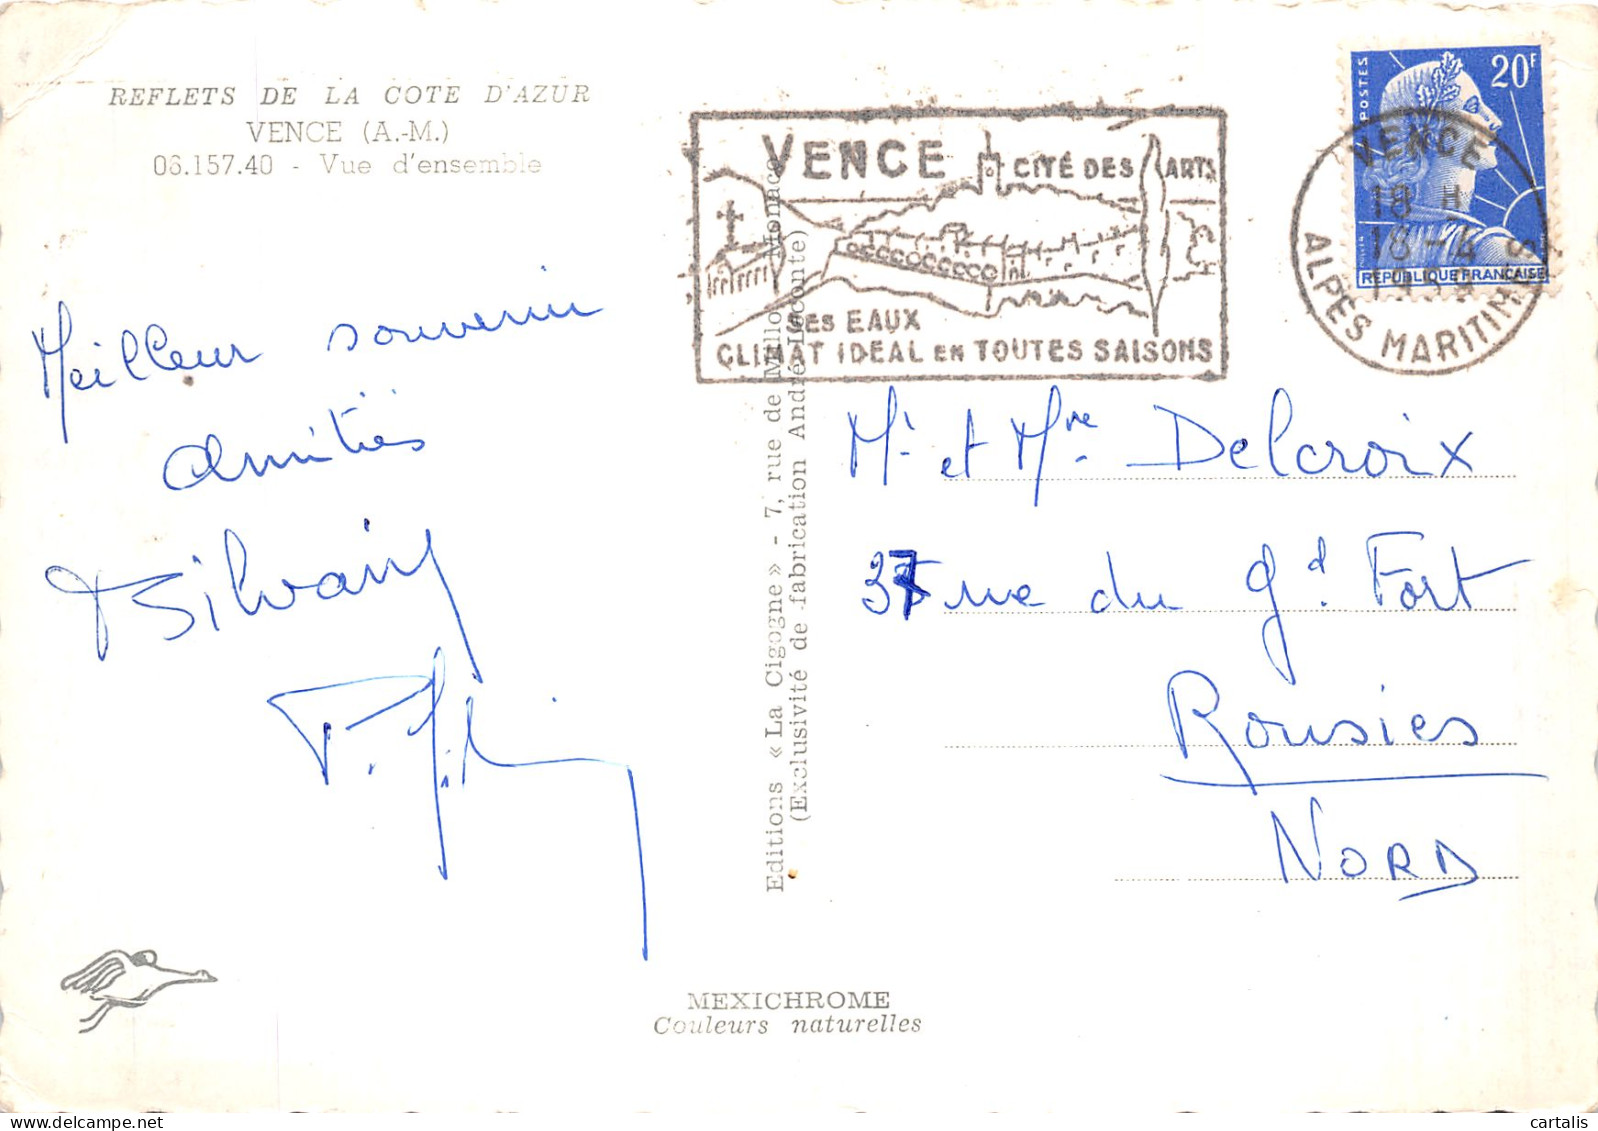 REFLETS DE LA COTE D'AZUR
VENCE (A.-M.)
06.157.40 - Vue d'ensemble
VENCE CITÉ DES ARTS
SES EAUX
CLIMAT IDEAL EN TOUTES SAISONS
POSTES
20F
REPUBLIQUE FRANCAISE
VENCE
18 H
16-4
ALPES MARITIMES
Meilleur souvenir
amitiés
Mr et Mme Delcroix
37 rue du Gd Fort
Rousies
NORD
Editions « La Cigogne » - 7, rue de Millo - Monaco
(Exclusivité de fabrication André Leconte)
MEXICHROME
Couleurs naturelles
cartalis